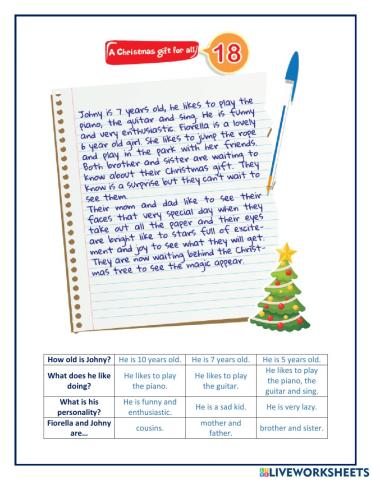 A Christmas gift for all!
18
Johny is 7 years old, he likes to play the
piano, the guitar and sing. He is funny
and very enthusiastic. Fiorella is a lovely
6 year old girl. She likes to jump the rope
and play in the park with her friends.
Both brother and sister are waiting to
know about their Christmas gift. They
know is a surprise but they can't wait to
see them.
Their mom and dad like to see their
faces that very special day when they
take out all the paper and their eyes
are bright like to stars full of excite-
ment and joy to see what they will get.
They are now waiting behind the Christ-
mas tree to see the magic appear.
How old is Johny? He is 10 years old. He is 7 years old. He is 5 years old.
What does he like doing? He likes to play the piano. He likes to play the guitar. He likes to play the piano, the guitar and sing.
What is his personality? He is funny and enthusiastic. He is a sad kid. He is very lazy.
Fiorella and Johny are... cousins. mother and father. brother and sister.
LIVEWORKSHEETS